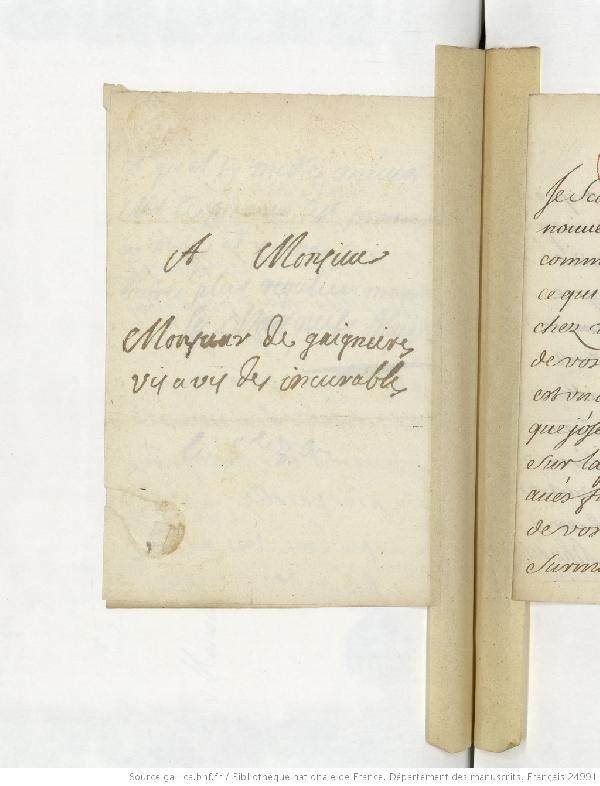 A Monsieur
Monsieur de gaignieres
vis a vis des incurables
Je
nouve
comm
ce qui
chez
de vos
est un
que j'ose
sur la
avés
de vos
surm
Source gallica.bnf.fr / Bibliothèque nationale de France. Département des manuscrits. Français 24991